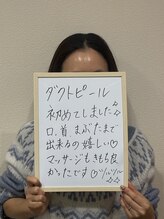 ダクトピール
初めてしました☆
口、首、まぶたまで
出来るの嬉しい♡
マッサージもきもち良
かったです♡ツルツル